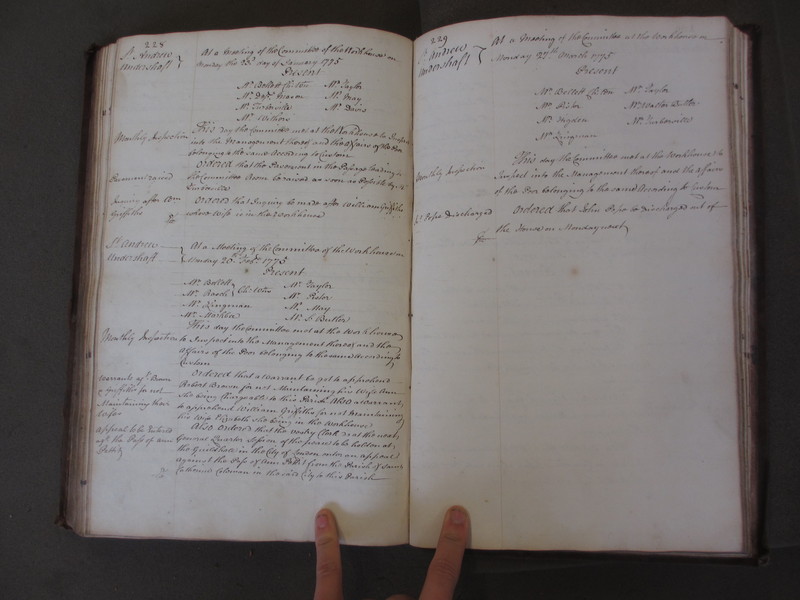 228
St. Andrew
Undershaft
At a Meeting of the Committee of the Workhouse on
Monday the 23d. day of January 1775
Present
Mr. Bellott Ch: Wn Mr. Taylor
Mr. Depy. Mr. May
Mr. Turberville Mr. Davis
Mr. Withow
Monthly Inspection
This day the Committee met at the Workhouse to Inspect
into the Management thereof and the Affairs of the Poor
belonging to the same According to Custom
Pavement raised
Ordered that the Pavement in the Passage leading to
the Committee Room be raised as soon as Possible by Mr.
Turberville
Inquiry after Wm
Griffiths
Ordered that Inquiry be made after William Griffiths
whose Wife is in the Workhouse
St. Andrew
Undershaft
At a Meeting of the Committee of the Workhouse on
Monday 20th. Feby. 1775
Present
Mr. Bellott
Mr. Ch: Wns
Mr. Taylor
Mr. Pistor
Mr. Kingman Mr. May
Mr. Mr. S Butler
Monthly Inspection
This day the Committee met at the Workhouse
to Inspect into the Management thereof and the
Affairs of the Poor belonging to the same according to
Custom
Warrants agt. Brown
& Griffiths for not
Maintaining their
Wifes
Ordered that a warrant be got to apprehend
Robert Brown for not Maintaining his Wife Ann
she being Chargeable to this Parish Also a Warrant
to apprehend William Griffiths for not Maintaining
his Wife Elizabeth she being in the Workhouse
Appeal to be Entered
agt. the Pass of Ann
Also ordered that the Vestry Clerk do at the next
General Quarter Session of the peace to be holden at
the Guildhall in the City of London enter an appeal
against the Pass of Ann from the Parish of Saint
Catherine Coleman in the said City to this Parish
229
St. Andrew
Undershaft
At a Meeting of the Committee at the Workhouse on
Monday 27th. March 1775
Present
Mr. Bellott Ch: Wn Mr. Taylor
Mr. Pistor Mr. Walter Butler
Mr. Hygden Mr. Turberville
Mr. Kingman
Monthly Inspection
This day the Committee met at the Workhouse to
Inspect into the Management thereof and the affairs
of the Poor belonging to the same According to Custom
Discharged
Ordered that John be discharged out of
the house on Monday next